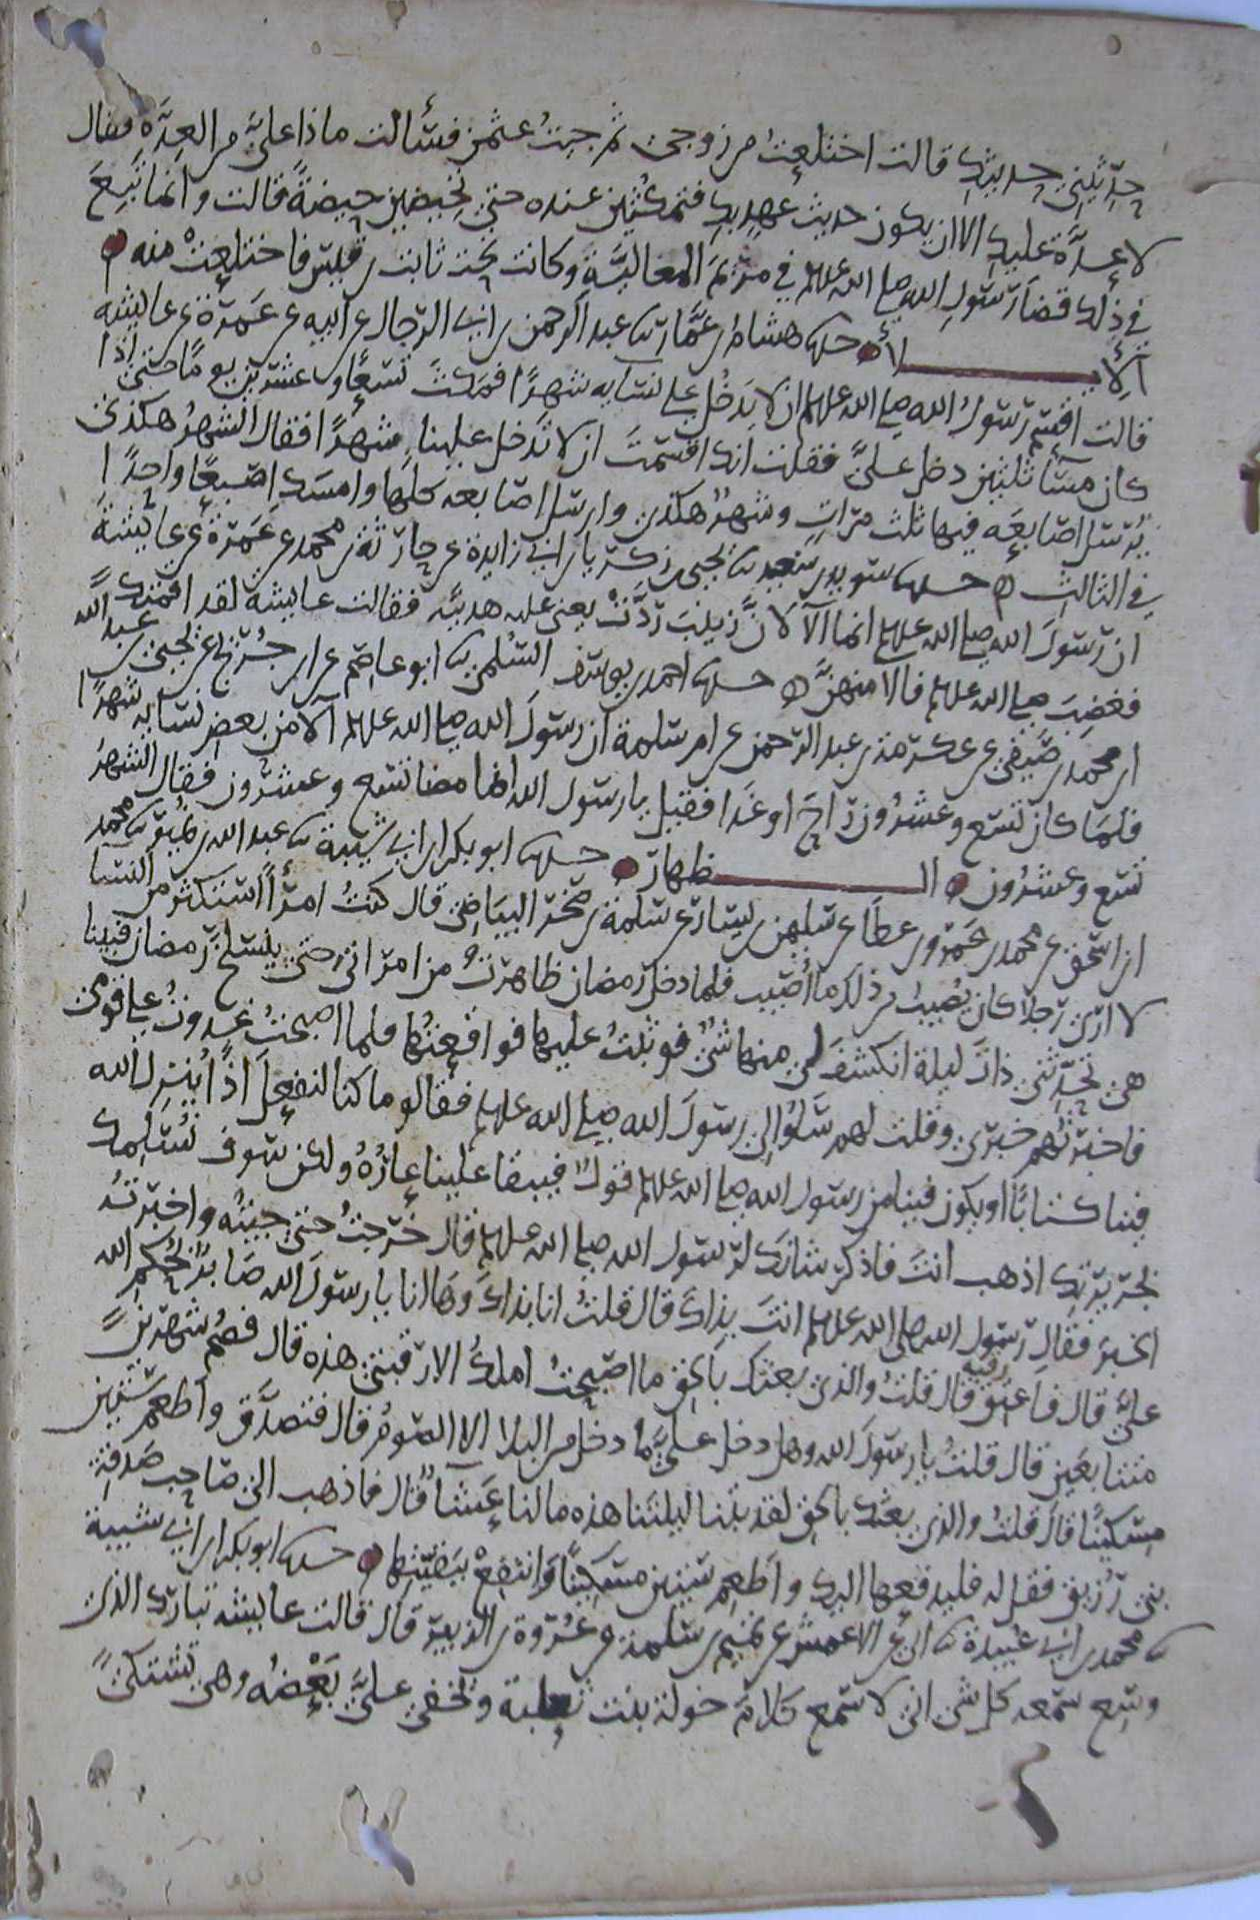 حدثيني حديثك قالت اختلعت من زوجي ثم جيت عثمن فسألت ماذا عليَّ من العدَّة فقال
لا عدَّة عليك الا ان يكون حديث عهد بك فتمكثين عنده حتى تحيضين حيضةً قالت وانما تبع
في ذلك قضا رسول الله صلى الله عليه وسلم في مريم المغاليَّة وكانت تحت ثابت بن قيس فاختلعت منه
الايـــلاء حدثنا هشام بن عمّار ثنا عبد الرحمن بن ابي الرجال عن ابيه عن عمرة عن عايشه
قالت اقسم رسول الله صلى الله عليه وسلم ان لا يدخل على نسايه شهرًا فمكث تسعًا وعشرين يومًا حتى اذا
كان مسآ ثلثين دخل عليَّ فقلت انك اقسمت ان لا تدخل علينا شهرًا فقال الشهرُ هكذى
يرسل اصابعه فيها ثلث مرات وشهر هكذى وارسل اصابعه كلها وامسك اصبعًا واحدًا
في الثالث حدثنا سويد بن سعيد ثنا يحيى بن زكريا بن ابي زايدة عن حارثة بن محمد عن عمرة عن عايشة
ان رسول الله صلى الله عليه وسلم انما آلا لانَّ زينب ردّت يعني عليه هديته فقالت عايشة لقد اقمتك
فغضب صلى الله عليه وسلم فالا منهنَّ حدثنا احمد بن يوسف السلمي ثنا ابو عاصم عن ابن جريج عن يحيى بن عبد الله
ابن محمد بن صيفي عن عكرمة بن عبد الرحمن عن ام سلمة ان رسول الله صلى الله عليه وسلم آلا من بعض نسايه شهرًا
فلما كان تسع وعشرون راح او غدا فقيل يا رسول الله انما مضا تسع وعشرون فقال الشهرُ
تسع وعشرون الـــظهار حدثنا ابو بكر بن ابي شيبة ثنا عبد الله بن نمير ثنا محمد
ابن اسحق عن محمد بن عمرو بن عطا عن سليمن بن يسار عن سلمة بن صخر البياضي قال كنت امرأً استكثر من النسا
لا ارى رجلا كان يصيب من ذلك ما اصيب فلما دخل رمضان ظاهرت من امراتي حتى ينسلخ رمضان فبينا
هي تحدثني ذات ليلة انكشف لي منها شئٌ فوثبت عليها فواقعتها فلما اصبحت غدوت على قومي
فاخبرتهم خبري وقلت لهم سلوا لي رسول الله صلى الله عليه وسلم فقالو ما كنا لنفعل اذًا يُنزل الله
فينا كتابًا او يكون فينا من رسول الله صلى الله عليه وسلم قولٌ فيبقا علينا عارُهُ ولكن سوف نُسلمك
بجريرتك اذهب انت فاذكر شانك لرسول الله صلى الله عليه وسلم قال خرجت حتى جيته واخبرته
الخبر فقال رسول الله صلى الله عليه وسلم انت بذاك قال قلت انا بذاك وها انا يا رسول الله صابرًا لحكم الله
عليَّ قال فاعتق رقبه قال قلت والذي بعثك بالحق ما اصبحت املك الا رقبتي هذه قال فصُم شهرين
متتابعين قال قلت يا رسول الله وهل دخل عليَّ ما دخل من البلا الا الصوم قال فتصدَّق واطعم ستين
مسكينًا قال قلت والذي بعثك بالحق لقد بتنا ليلتنا هذه ما لنا عَشآ قال فاذهب الى صاحب صدقة
بني زريق فقل له فليدفعها اليك واطعم ستين مسكينًا وانتفع ببقيتها حدثنا ابو بكر بن ابي شيبة
ثنا محمد بن ابي عبيدة ثنا ابي عن الاعمش عن تميم بن سلمة عن عُروة بن الزبير قال قالت عايشه تبارك الذي
وسِع سمعه كل شي اني لاسمع كلام خولة بنت ثعلبة ويخفى عليَّ بعضه وهي تشتكي